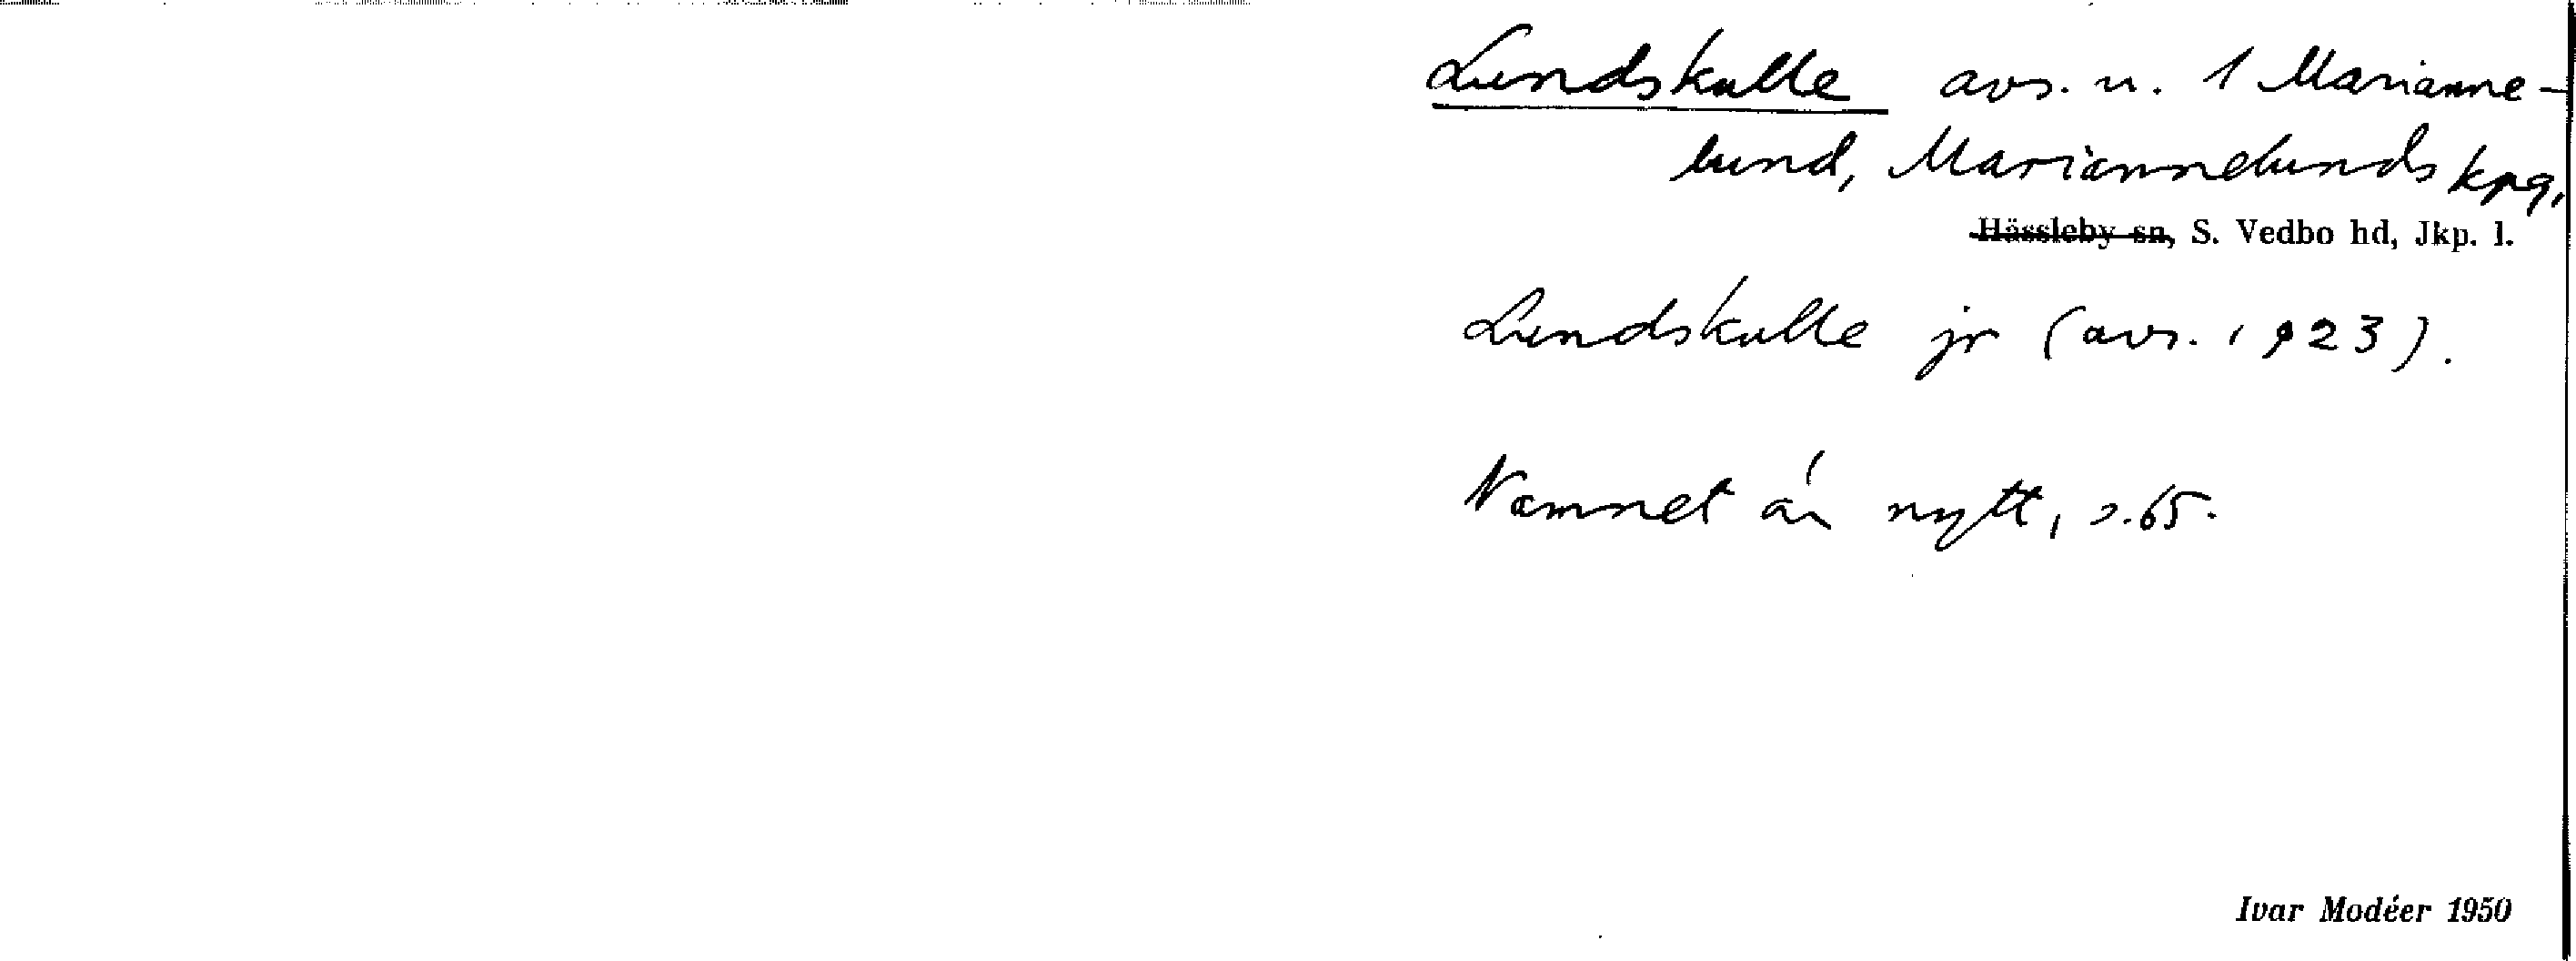 Lundskulle avs. u. 1 Marianne-
lund, Mariannelunds kpg,
Hässleby sn, S. Vedbo hd, Jkp. l.
Lundskulle jr (avs. 1923).
Namnet är nytt, s. 65.
Ivar Modéer 1950